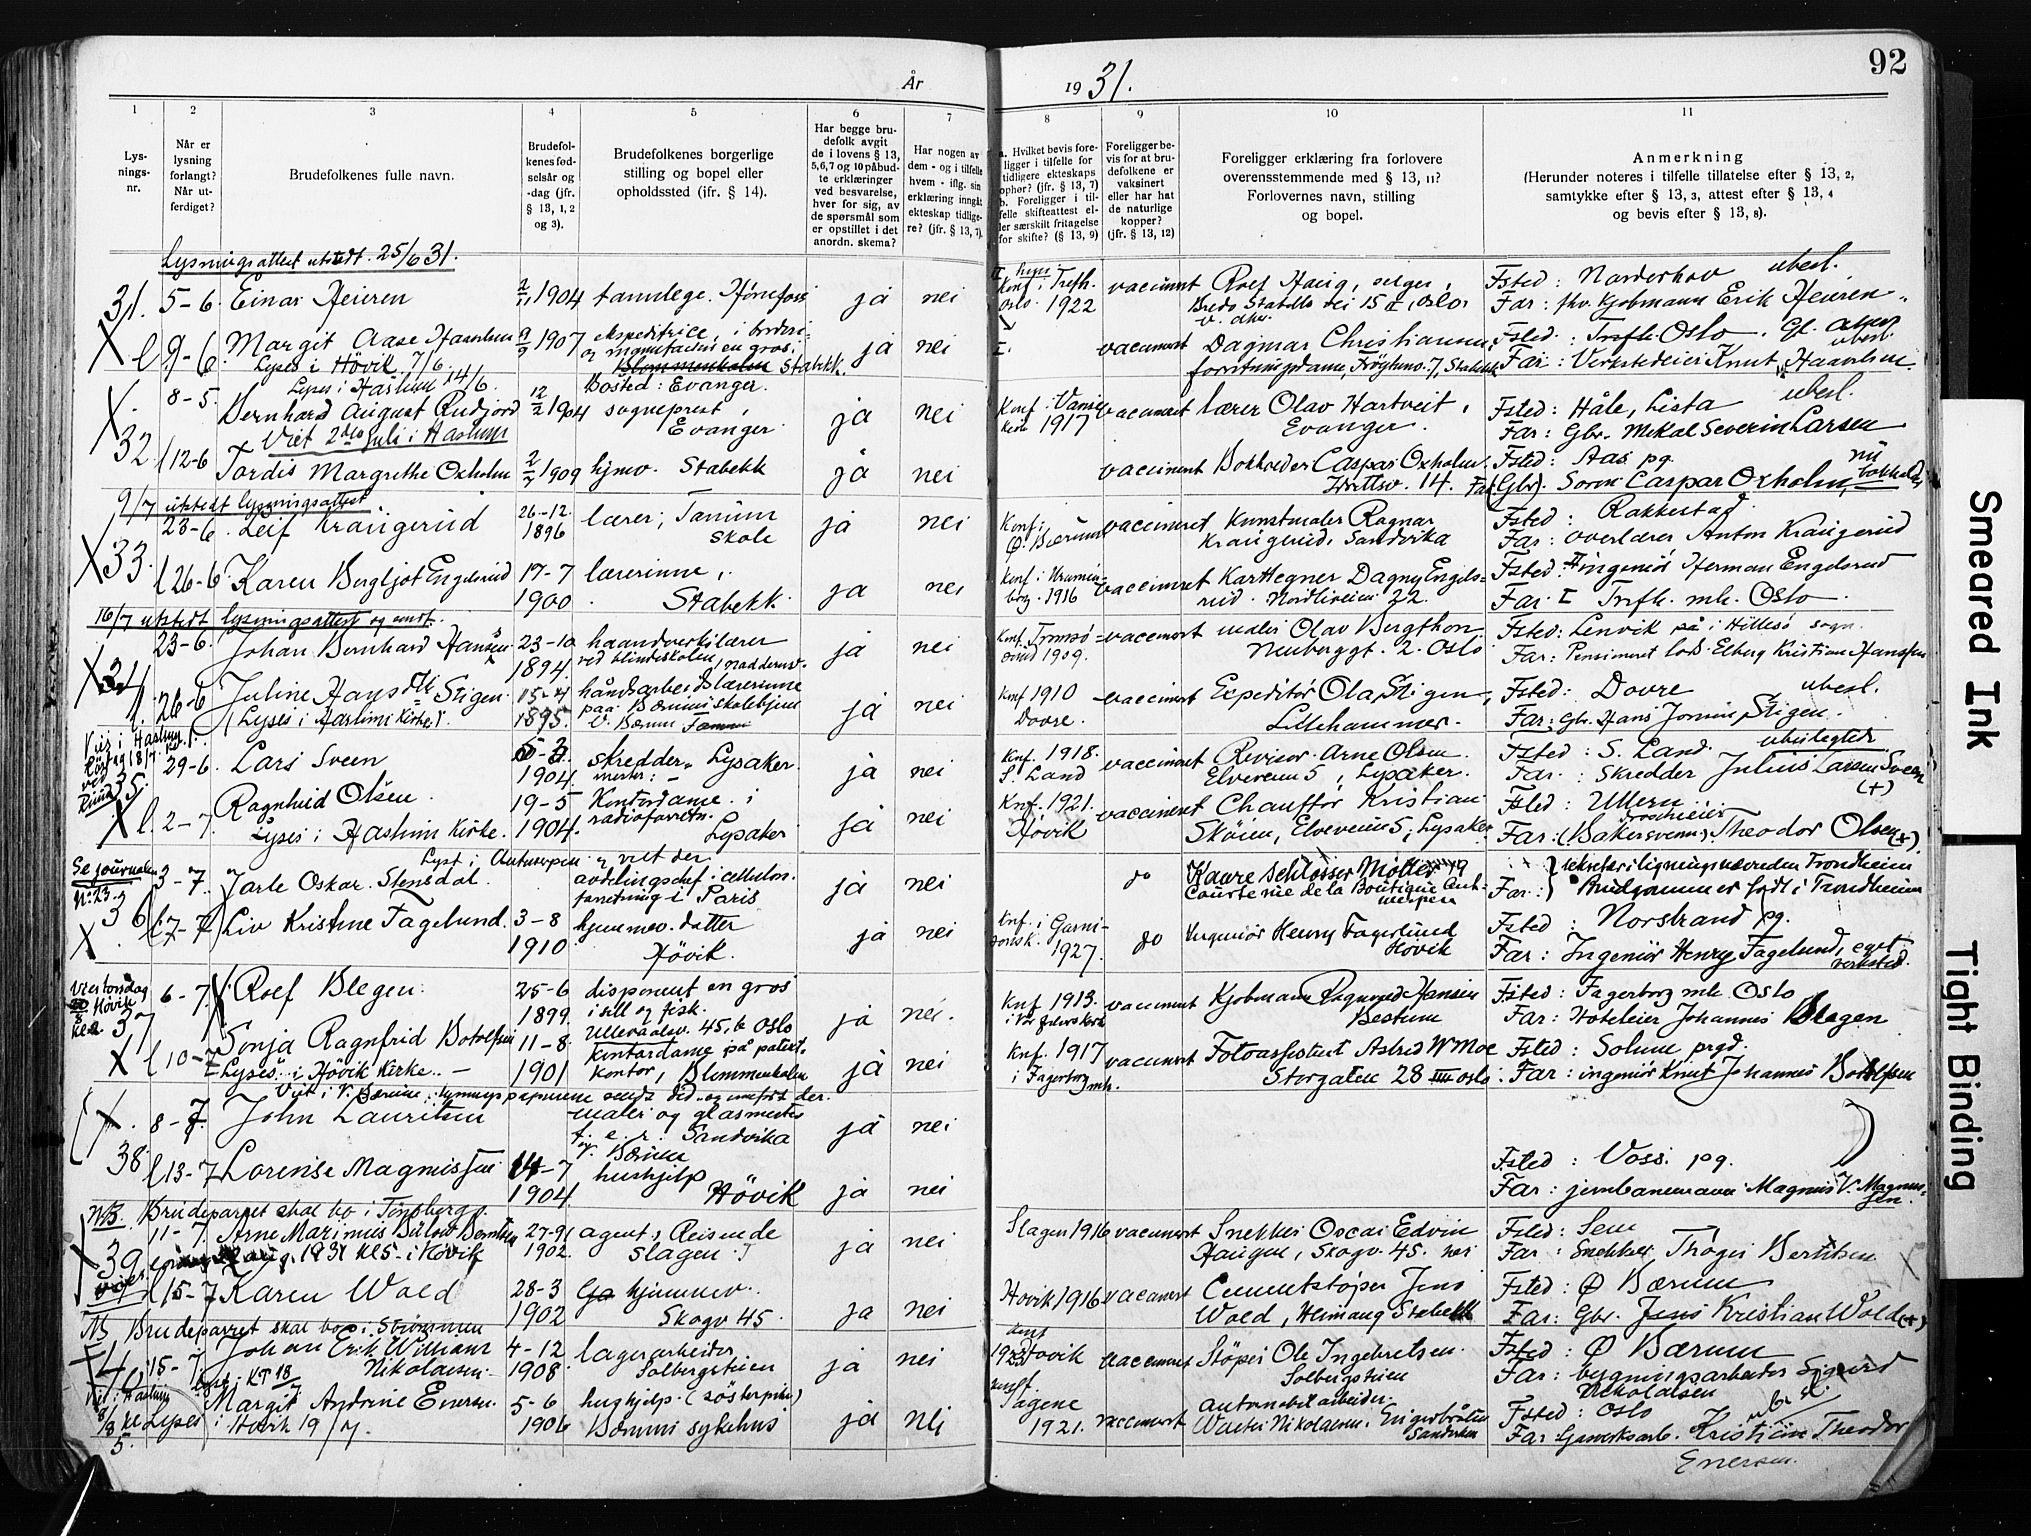 92
År
19 31.
1
2
3
4
5
6
7
8
9
10
11
Lys-
nings-
nr.
Når er
lysning
forlangt?
Når ut-
ferdiget?
Brudefolkenes fulle navn.
Brudefol-
kenes fød-
selsår og
-dag (jfr.
§ 13, 1, 2
og 3).
Brudefolkenes borgerlige
stilling og bopel eller
opholdssted (ifr. § 14).
Har begge bru-
defolk avgit
de i lovens § 13,
5,6,7 og 10 påbud-
te erklæringer
ved besvarelse,
hver for sig, av
de spørsmål som
er opstillet i det
anordn. skema?
Har nogen av
dem - og i tilfelle
hvem - iflg. sin
erklæring inngåt
ekteskap tidlige-
re? (jfr. § 13, 7).
a. Hvilket bevis fore-
ligger i tilfelle for
tidligere ekteskaps
ophør? (jfr. § 13, 7)
b. Foreligger i til-
felle skifteattest el-
ler særskilt fritagelse
for skifte? (§ 13, 9)
Foreligger be-
vis for at bru-
defolkene er
vaksinert
eller har hat
de naturlige
kopper?
(jfr. § 13, 12)
Foreligger erklæring fra forlovere
overensstemmende med § 13, 11?
Forlovernes navn, stilling
og bopel.
Anmerkning
(Herunder noteres i tilfelle tillatelse efter § 13, 2,
samtykke efter § 13, 3, attest efter § 13, 4
og bevis efter § 13, 8).
Lysningsattest utstedt 25/6 31.
31. 5-6. Einar Heieren 1904 tannlege. Hønefoss ja nei
Konf. i Trefh. Oslo 1922 vaccinert Rolf Haug, selger, Fsted: Norderhov ubesl.
Far: fhv. kjøbmann Erik Heieren
9-6 Margit Aase Haavelsen 1907 ekspeditrice, ja nei
og manufaktur en gros, Stabekk.
Lyses i Høvik 7/6
vaccinert Dagmar Christiansen Fsted: Trefh. Oslo.
Stabekk Far: Verksteieier Knut Haavelsen
Lyses i Haslum 14/6.
8-5. Bernhard August Rudjord 12/2 1904 Bosted: Evanger.
sogneprest, Evanger ja nei
Konf: Vanse kirke 1917 vaccinert lærer Olav Hartveit, Evanger. Fsted: Håle, Lista ubesl.
Far: Gbr. Mikal Severin Larsen
Viet 2den juli i Haslum
32. 12-6 Tordis Margrethe Oxholm 1909 hjmv. Stabekk ja nei
vaccinert Bokholder Caspar Oxholm Fsted: Aas pg. nu
14. Far (Gbr). Soren Caspar Oxholm, bokholder
9/7 utstedt lysningsattest
23-6. Leif Kraugerud 26-12. 1896 lærer, Tanum skole ja nei
Konf: Ø. Bærum vaccineret Kunstmaler Ragnar Kraugerud, Sandvika Fsted: Rakkestad
Far: overlærer Anton Kraugerud
33. 26-6 Karen Bergljot Engelsrud 17-7 1900 lærerinne, Stabekk ja nei
1916 vaccineret Kar Hegner Dagny Engelsrud. Nordliveien 22. Fsted: II ingeniør Herman Engelsrud
Far: I Trefh. mh. Oslo.
16/7 utstedt lysningsattest og sendt.
23-6. Johan Bernhard Hansen 23-10 1894. haandverkslærer
ved blindeskolen, ja nei
Konf. Tromsø 1909. vaccinert maler Olav Bergthon
Neuberggt. 2. Oslo Fsted: Lenvik på i Hillesø sogn.
Far: Pensioneret los Elberg Kristian Hanssen
34. 26-6 Juline Hansdtr. Stigen 15-4 1895. håndarbeidslærerinne
paa Bærums skolehjem
V. Bærum ja nei
Lyses i Haslum Kirke.
Konf 1910 Dovre. vaccinert Expeditør Ola Stigen, Lillehammer. Fsted: Dovre ubesl.
Far: Gbr. Hans Stigen.
29-6. Lars Sveen 1904. skredder, Lysaker. mester: - ja nei
Knf. 1918. S. Land vaccinert Revisor Arne Olsen
Elveveien 5, Lysaker. Fsted: S. Land. ubeslegtede
Far: Skredder Julius Larsen Sveen (+)
35. 2-7. Ragnhild Olsen. 19-5 1904. Kontordame i
radioforretn. Lysaker ja nei
Lyses i Haslum Kirke.
Knf. 1921. Høvik vaccineret Chauffør Kristian
Skøien, Elveveien 5, Lysaker. Fsted: Ullern
Far: (Bakersvenn) Theodor Olsen (+)
Lyst i Antwerpen og viet der.
Se journalen No. 23
3-7. Jarle Oskar Stensdal avdelingschef i cellulose-
forretning i Paris ja nei
do Kaare Schlösser Møller Fsted: sekretær i ligningsnævnden Trondheim
Far: Brudgommen er født i Trondheim
36 7-7 Liv Kristine Fagelund 3-8 1910 hjemmev. datter Høvik. ja nei
Knf. i Garnisonsk. 1927. do Ingeniør Henry Fagerlund Høvik Fsted: Norstrand pg.
Far: Ingeniør Henry Fagelund, eget verksted.
Vies torsdag Høvik
37 6-7 Rolf Blegen. 25-6 1899. disponent en gros
i sild og fisk.
Ullevaalsv. 45, b Oslo ja nei.
Knf. 1913. i Vor frelsers kirke vaccinert Kjøbmann Ragnvald Hansen Bestum Fsted: Fagerborg mh. Oslo
Far: Hoteleier Johannes Blegen
10-7 Sonja Ragnfrid Botolfsen 11-8 1901 kontordame på patent-
kontor, Blommenholm ja nei
Lyses i Høvik Kirke. -
Knf. 1917 i Fagerborg mh. vaccinert Fotoassistent Astrid W Moe
Storgaten 28 III Oslo. Fsted: Solum prgd.
Far: ingeniør Knut Johannes Botolfsen
8-7. John Lauritsen maler og glasmester
Sandvika ja nei
38. 13-7 Lorense Magnussen 14-7 1904. V. Bærum
hushjelp Høvik ja nei
Fsted: Voss. pg.
Far: jernbanemann Magnus V. Magnussen.
NB. Brudeparret skal bo i Tønsberg.
39. 11-7. Arne Marinius Bülow Berntsen 27-9 1902. agent, Reisende
Slagen. ja nei
aug. 1931 kl 5. i Høvik
Slagen 1916 vaccinert Snekker Oscar Edvin
Haugen, Skogv. 45. Fsted: Sem
Far: Snekker Thøger Berntsen
15-7 Karen Wold 28-3 1902 hjemmev.
Skogv 45. ja nei
Høvik 1916 vaccinert Cementstøper Jens
Wold, Stabekk Fsted: Ø Bærum
Far: Gbr. Jens Kristian Wold (+)
NB Brudeparret skal bo i Strømmen
40 15-7 Johan Erik William Nikolaisen 4-12 1908. lagerarbeider
Solbergveien ja nei
Høvik vaccinert Støper Ole Ingebretsen. Solbergveien Fsted: Ø Bærum
Far: bygningsarbeider Sigurd Nikolaisen
Viet i Haslum 8/8 kl 5.
Margit Andrine Enersen. 5-6 1906 hushjelp. (søsterpike)
Bærums sykehus ja nei
Lyses i Høvik 19/7.
Sagene 1921. vaccinert automobilarbeider.
Walter Nikolaisen, Sandviken Fsted: Oslo ubesl.
Far: Gasverksarb. Kristian Theodor
Enersen.
Smeared Ink
Tight Binding